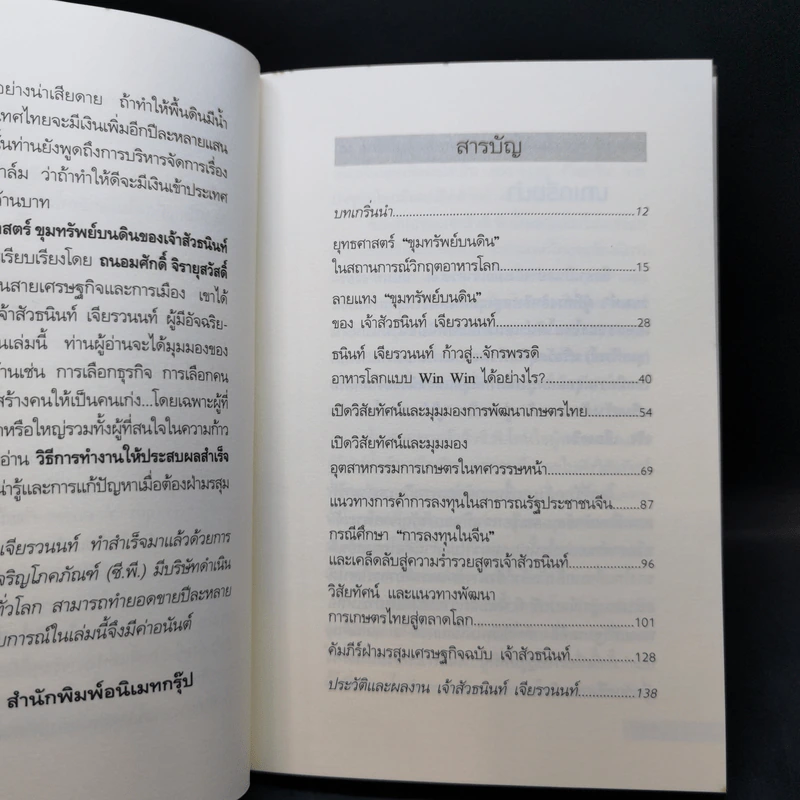 อย่างน่าเสียดาย ถ้าทำให้พื้นดินมีน้ำ
เทศไทยจะมีเงินเพิ่มอีกปีละหลายแสน
ท่านยังพูดถึงการบริหารจัดการเรื่อง
ว่าถ้าทำให้ดีจะมีเงินเข้าประเทศ
้านบาท
าสตร์ ขุมทรัพย์บนดินของเจ้าสัวธนินท์
เรียบเรียงโดย ถนอมศักดิ์ จิรายุสวัสดิ์
นสายเศรษฐกิจและการเมือง เขาได้
เจ้าสัวธนินท์ เจียรวนนท์ ผู้มีอัจฉริย-
นเล่มนี้ ท่านผู้อ่านจะได้มุมมองของ
้านเช่น การเลือกธุรกิจ การเลือกคน
สร้างคนให้เป็นคนเก่ง...โดยเฉพาะผู้ที่
หรือใหญ่รวมทั้งผู้ที่สนใจในความก้าว
อ่าน วิธีการทำงานให้ประสบผลสำเร็จ
น่ารู้และการแก้ปัญหาเมื่อต้องฝ่ามรสุม
เจียรวนนท์ ทำสำเร็จมาแล้วด้วยการ
จริญโภคภัณฑ์ (ซี.พี.) มีบริษัทดำเนิน
ทั่วโลก สามารถทำยอดขายปีละหลาย
บการณ์ในเล่มนี้จึงมีค่าอนันต์
สำนักพิมพ์อนิเมทกรุ๊ป
สารบัญ
บทเกริ่นนำ............12
ยุทธศาสตร์ "ขุมทรัพย์บนดิน"
ในสถานการณ์วิกฤตอาหารโลก............15
ลายแทง "ขุมทรัพย์บนดิน"
ของ เจ้าสัวธนินท์ เจียรวนนท์............28
ธนินท์ เจียรวนนท์ ก้าวสู่...จักรพรรดิ
อาหารโลกแบบ Win Win ได้อย่างไร?............40
เปิดวิสัยทัศน์และมุมมองการพัฒนาเกษตรไทย............54
เปิดวิสัยทัศน์และมุมมอง
อุตสาหกรรมการเกษตรในทศวรรษหน้า............69
แนวทางการค้าการลงทุนในสาธารณรัฐประชาชนจีน............87
กรณีศึกษา "การลงทุนในจีน"
และเคล็ดลับสู่ความร่ำรวยสูตรเจ้าสัวธนินท์............96
วิสัยทัศน์ และแนวทางพัฒนา
การเกษตรไทยสู่ตลาดโลก............101
คัมภีร์ฝ่ามรสุมเศรษฐกิจฉบับ เจ้าสัวธนินท์............128
ประวัติและผลงาน เจ้าสัวธนินท์ เจียรวนนท์............138